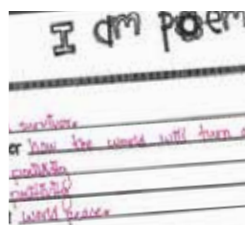 I am poem
survivor.
er how the world will turn
positivity
world peace.